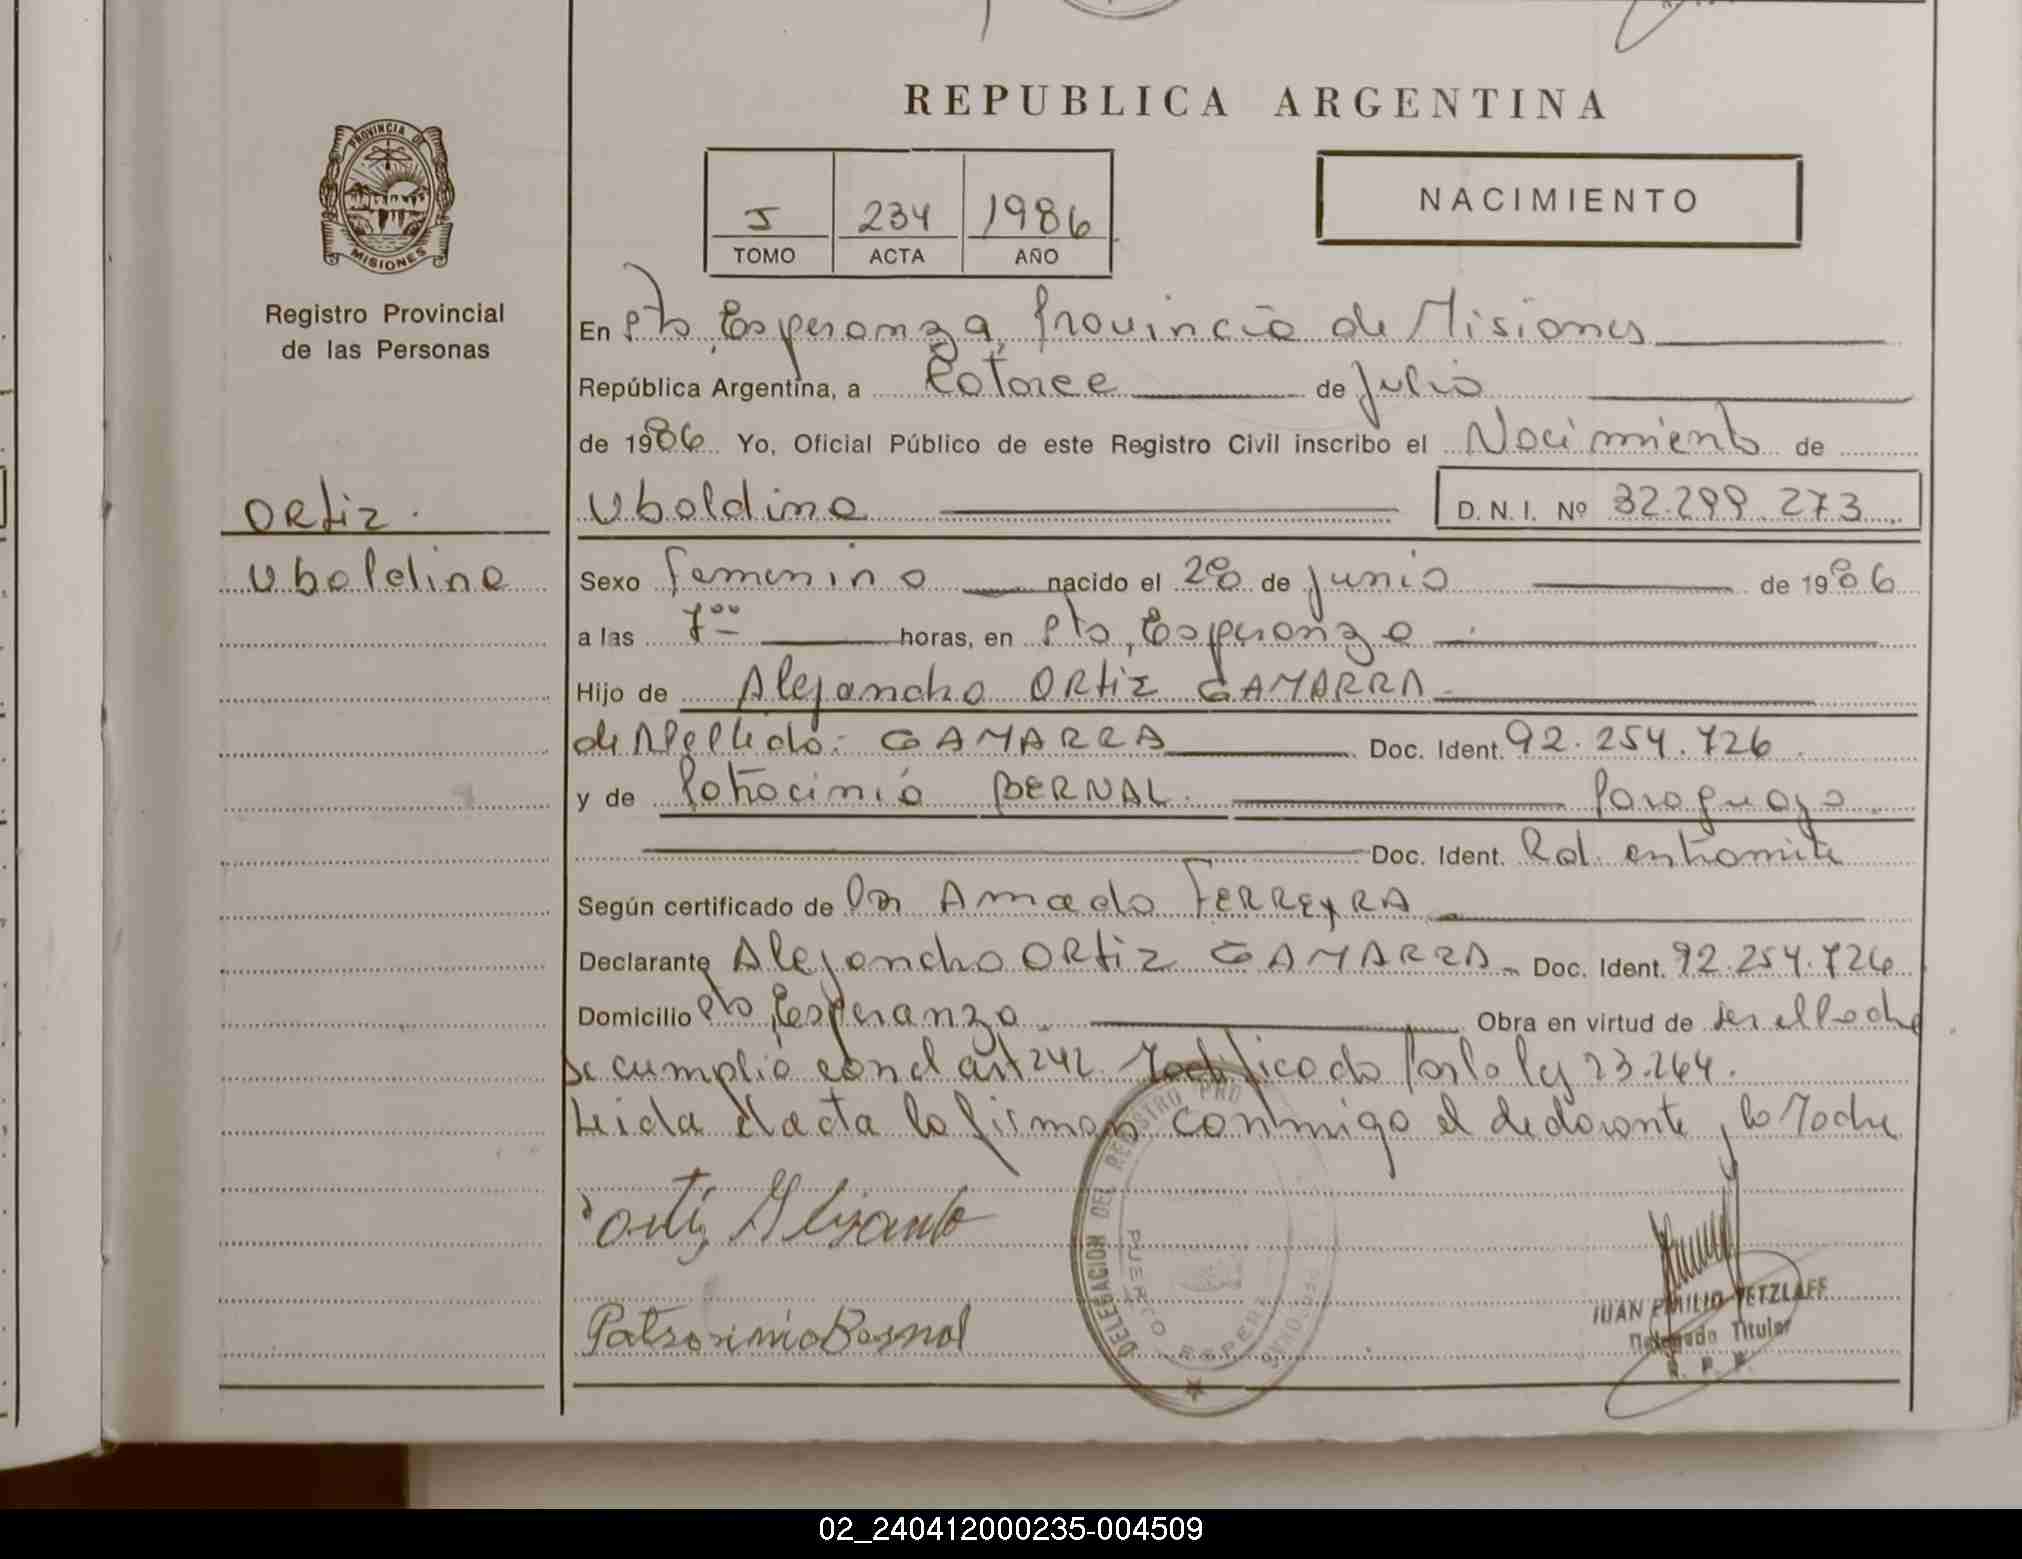 REPUBLICA ARGENTINA
PROVINCIA DE
MISIONES
Registro Provincial
de las Personas
I 234 1986
TOMO ACTA AÑO
NACIMIENTO
En Pto Esperanza, Provincia de Misiones
República Argentina, a Catorce de Julio
de 1986 Yo, Oficial Público de este Registro Civil inscribo el Nacimiento de
ORtiz.
Ubaldina
Ubaldina D. N. I. Nº 32.299.273
Sexo Femenino nacido el 20 de Junio de 1986
a las 7 00 horas, en Pto, Esperanza
Hijo de Alejandro ORtiz GAMARRA
de Apellido: GAMARRA Doc. Ident. 92.254.726
y de Patrocinia BERNAL Paraguaya
Doc. Ident. Rad. entramite
Según certificado de Amado FERREyRA
Declarante Alejandro ORtiz GAMARRA Doc. Ident. 92.254.726
Domicilio Pto Esperanza Obra en virtud de ser el Padre
Se cumplió con el art 242. Modificado Por la ley 23.264.
Leida el acta la firman conmigo el declarante, la Madre
Ortiz
Patrosinia Bernal
DELEGACION DEL REGISTRO PRO
PUERTO ESPER
JUAN EMILIO PETZLAFF
Delegado Titular
R. P. P.
02_240412000235-004509